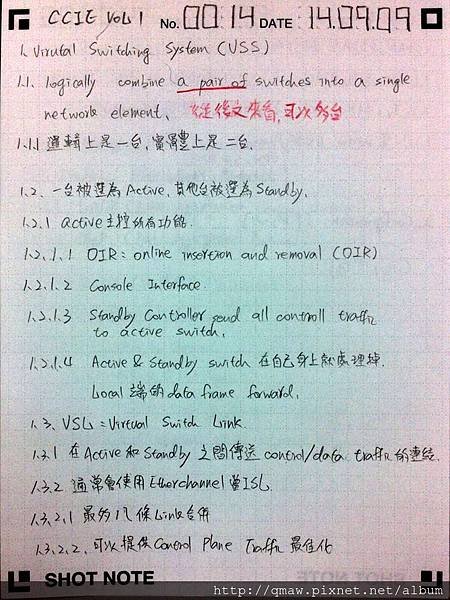 CCIE Vol 1 No. 00:14 DATE 14.09.09
1. Virutal Switching System (VSS)
1.1. logically combine a pair of switches into a single
network element. 從後文來看,可以多台
1.1.1 邏輯上是一台,實體上是二台.
1.2. 一台被選為Active,其他台被選為Standby.
1.2.1 active主控所有功能.
1.2.1.1 OIR: online insertion and removal (OIR)
1.2.1.2 Console Interface.
1.2.1.3 Standby Controller send all controll traffic
to active switch.
1.2.1.4 Active & Standby switch 在自己身上就處理掉.
Local 端的data frame forward.
1.3. VSL = Virtual Switch Link.
1.3.1 在Active和Standby 之間傳送 control/data traffic的連結.
1.3.2 通常會使用Etherchannel當ISL.
1.3.2.1 最多八條Link合併
1.3.2.2. 可以提供Control Plane Traffic 最佳化
SHOT NOTE
http://qmaw.pixnet.net/album